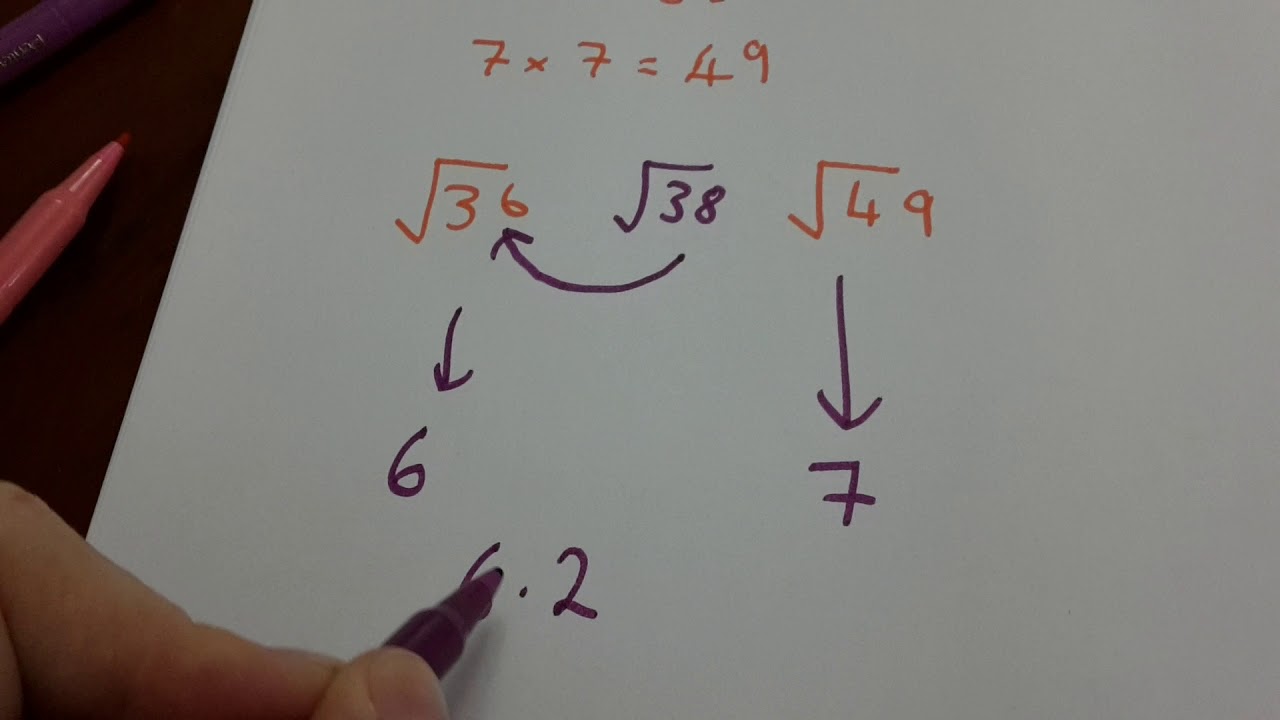 7 × 7 = 49
√36 √38 √49
6 7
6.2